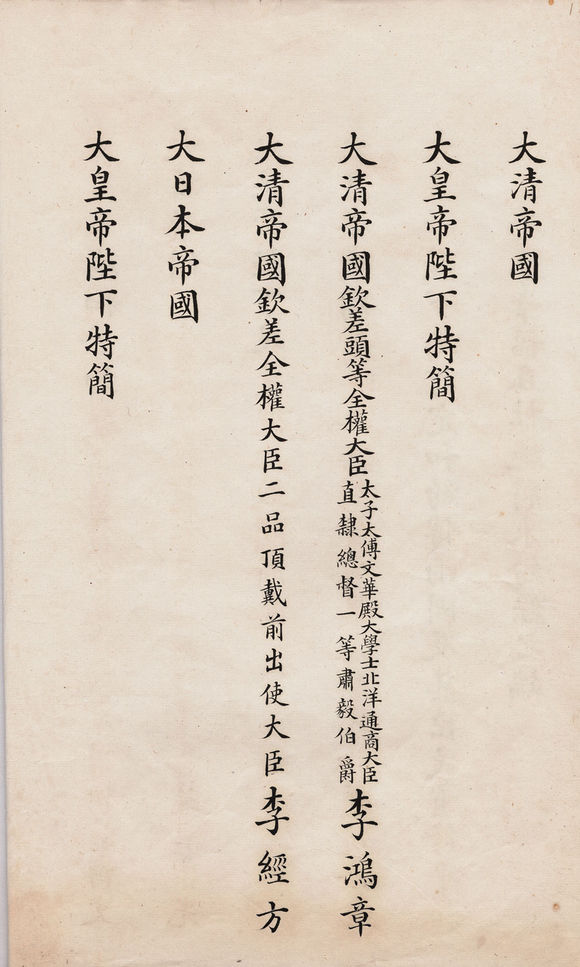 大清帝國
大皇帝陛下特簡
大清帝國欽差頭等全權大臣太子太傅文華殿大學士北洋通商大臣直隸總督一等肅毅伯爵李鴻章
大清帝國欽差全權大臣二品頂戴前出使大臣李經方
大日本帝國
大皇帝陛下特簡